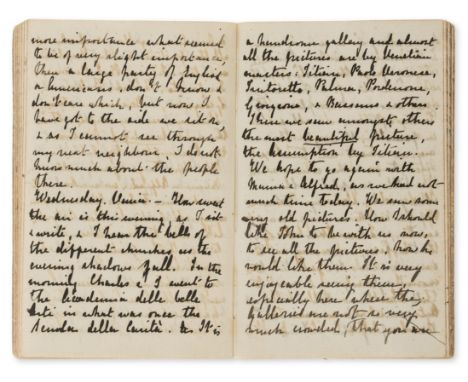 more importance what seemed
to be of very slight importance,
then a large party of English
& Americans, don't know &
don't care which, but now I
have got to the side we sit on
& as I cannot see through
my next neighbour, I do not
know much about the people
there.
Wednesday. Venice — How sweet
the air is this evening, as I sit
& write, & I hear the bells of
the different churches as the
evening shadows fall. In the
morning Charles & I went to
the Accademia delle belle
Arti in what was once the
Scuola della Carità. It is
a handsome gallery and almost
all the pictures are by Venetian
masters: Titian, Paolo Veronese,
Tintoretto, Palma, Pordenone,
Giorgione, & Bassano & others.
There we saw amongst others
the most beautiful picture,
the Assumption by Titian.
We hope to go again with
Mama & Alfred, as we had not
much time today. We saw some
very old pictures. How I should
like John to be with us now,
to see all the pictures, how he
would like them. It is very
enjoyable seeing them,
especially here where the
Galleries are not so very
much crowded, that you are